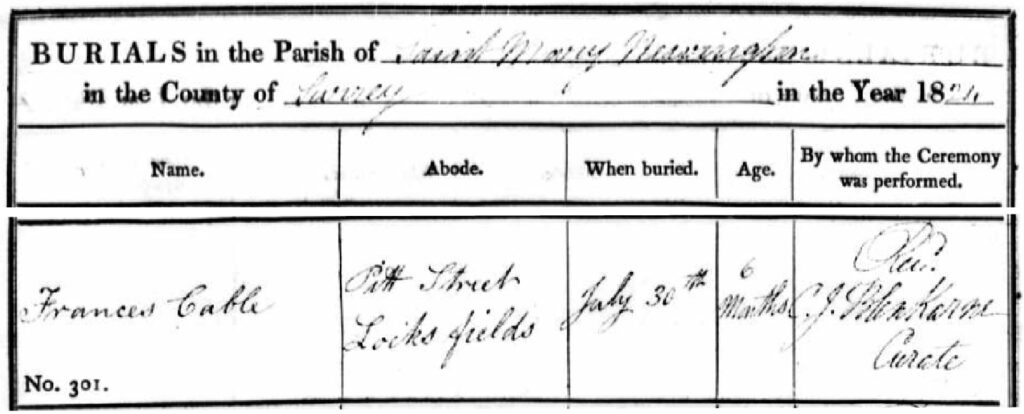 BURIALS in the Parish of Saint Mary Newington
in the County of Surrey in the Year 1824
Name. Abode. When buried. Age. By whom the Ceremony was performed.
Frances Cable
No. 301.
Pitt Street
Locks fields
July 30th
6
Months
Rev.
C. J. Blenkarne
Curate